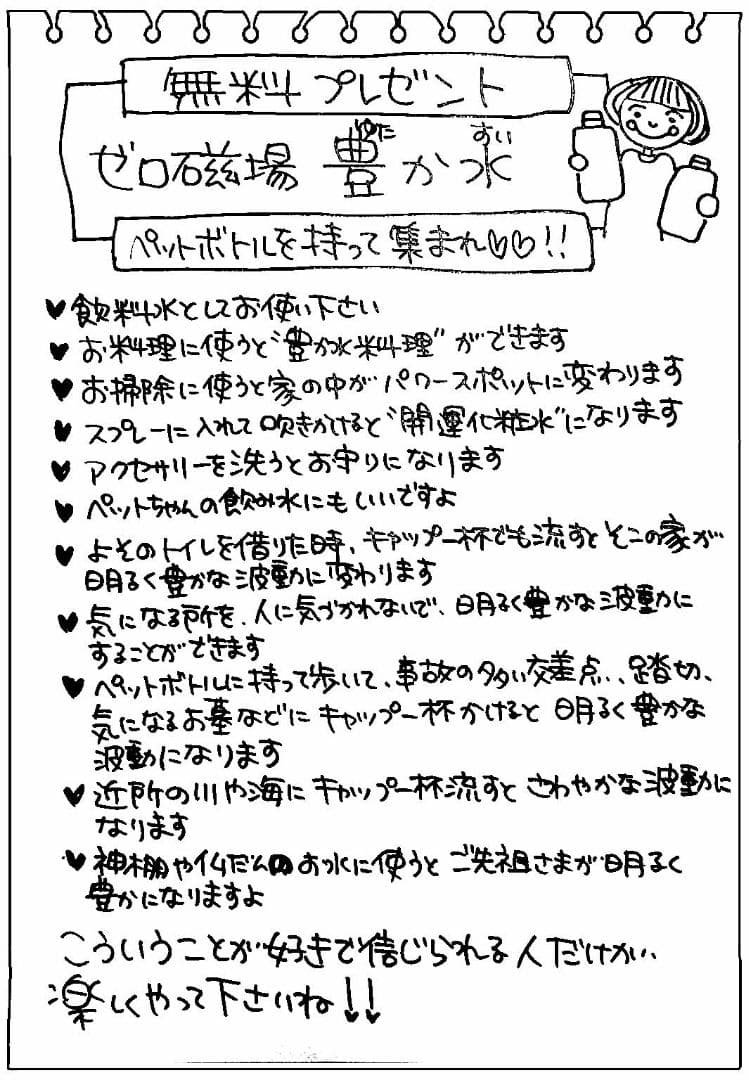 無料プレゼント
ゼロ磁場 豊か水
ゆた すい
ペットボトルを持って集まれ♡♡!!
♥ 飲料水としてお使い下さい
♥ お料理に使うと“豊か水料理”ができます
♥ お掃除に使うと家の中がパワースポットに変わります
♥ スプレーに入れて吹きかけると“開運化粧水”になります
♥ アクセサリーを洗うとお守りになります
♥ ペットちゃんの飲み水にもいいですよ
♥ よそのトイレを借りた時、キャップ一杯でも流すとそこの家が
明るく豊かな波動に変わります
♥ 気になる所を、人に気づかれないで、明るく豊かな波動に
することができます
♥ ペットボトルに持って歩いて、事故の多い交差点、踏切、
気になるお墓などにキャップ一杯かけると明るく豊かな
波動になります
♥ 近所の川や海にキャップ一杯流すとさわやかな波動に
なります
♥ 神棚や仏だんのお水に使うとご先祖さまが明るく
豊かになりますよ
こういうことが好きで信じられる人だけが、
楽しくやって下さいね!!